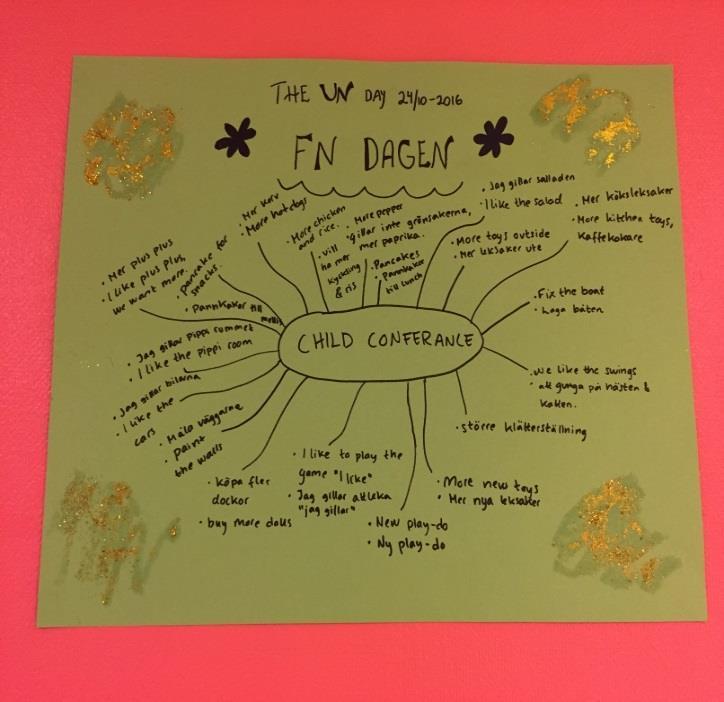 THE UN DAY 24/10-2016
FN DAGEN
• Mer plus plus
• I like plus plus,
we want more.
• pancake for
snacks.
• Pannkakor till
mellis
• Mer korv
• More hotdogs
• More chicken
and rice.
• vill
ha mer
kyckling
& ris
• More pepper
• gillar inte grönsakerna,
mer paprika.
• Pancakes
• Pannkakor
till lunch
• Jag gillar salladen
• I like the salad
• More toys outside
• Mer leksaker ute
• Mer köksleksaker
• More kitchen toys,
kaffekokare
CHILD CONFERANCE
• Fix the boat
• Laga båten
• we like the swings
• att gunga på hästen &
katten.
• större klätterställning
• Jag gillar pippi rummet
• I like the pippi room
• Jag gillar bilarna
• I like the
cars
• Måla väggarna
• Paint
the walls
• köpa fler
dockor
• buy more dolls
• I like to play the
game "I like"
• Jag gillar att leka
"jag gillar"
• New play-do
• Ny play-do
• More new toys
• Mer nya leksaker